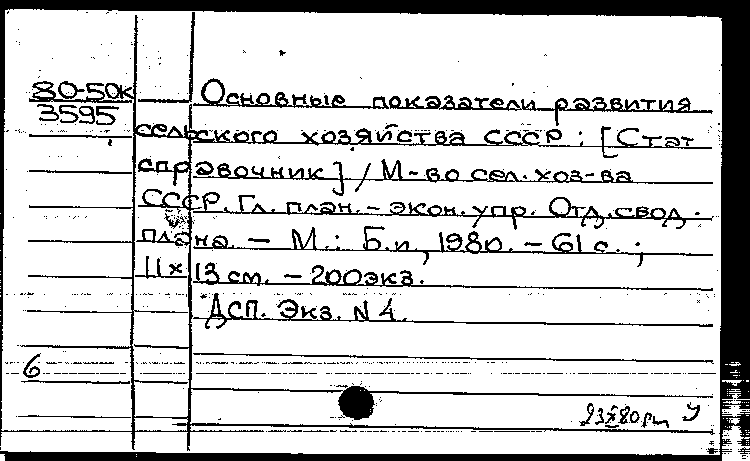 80-50к
3595
Основные показатели развития
сельского хозяйства СССР : [Стат
справочник] / М-во сел. хоз-ва
СССР. Гл. план. - экон. упр. Отд. свод.
плана. — М. : Б.и., 1980. - 61 с. ;
11 х 13 см. - 200 экз.
ДСП. Экз. N 4.
6